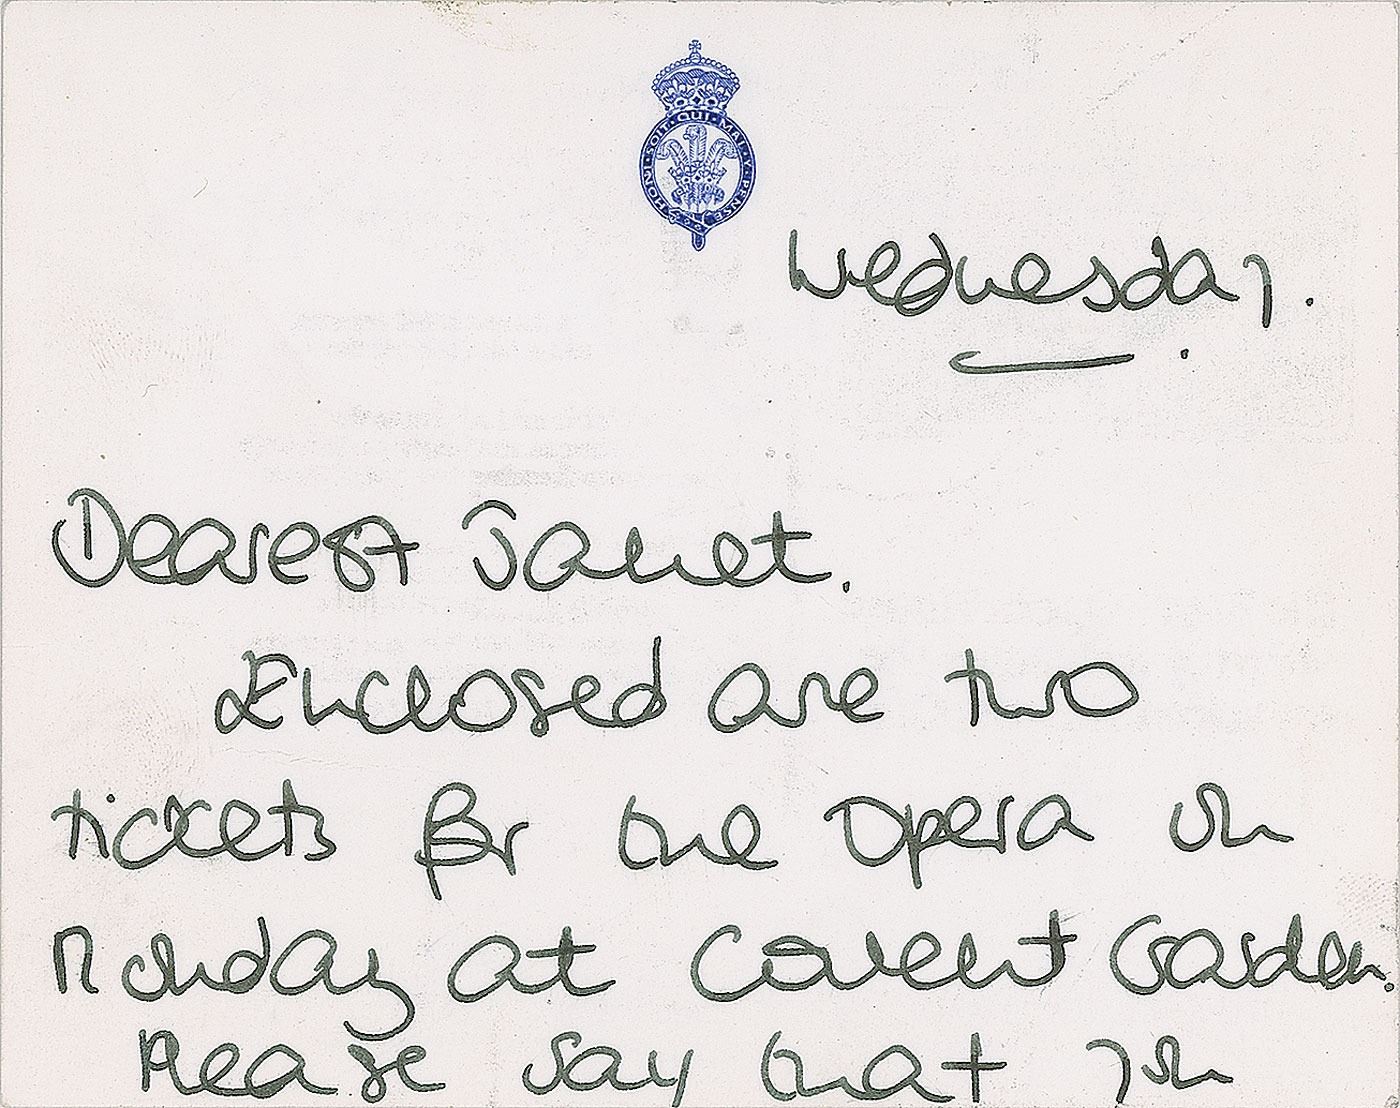 HONI·SOIT·QUI·MAL·Y·PENSE
Wednesday.
Dearest Janet.
Enclosed are two
tickets for the Opera on
Monday at Covent Garden.
Please say that you